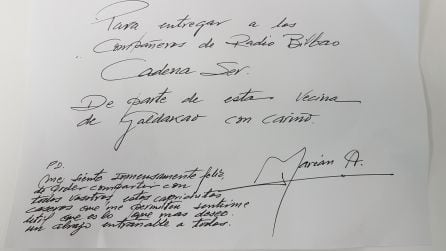 Para entregar a los
Compañeros de Radio Bilbao
Cadena Ser.
De parte de esta vecina
de Galdakao con cariño.
P.D.
Me siento inmensamente feliz
de poder compartir con
todos vosotros estos caprichitos
caseros que me permiten sentirme
útil que es lo que mas deseo.
un abrazo entrañable a todos.
Marian A.